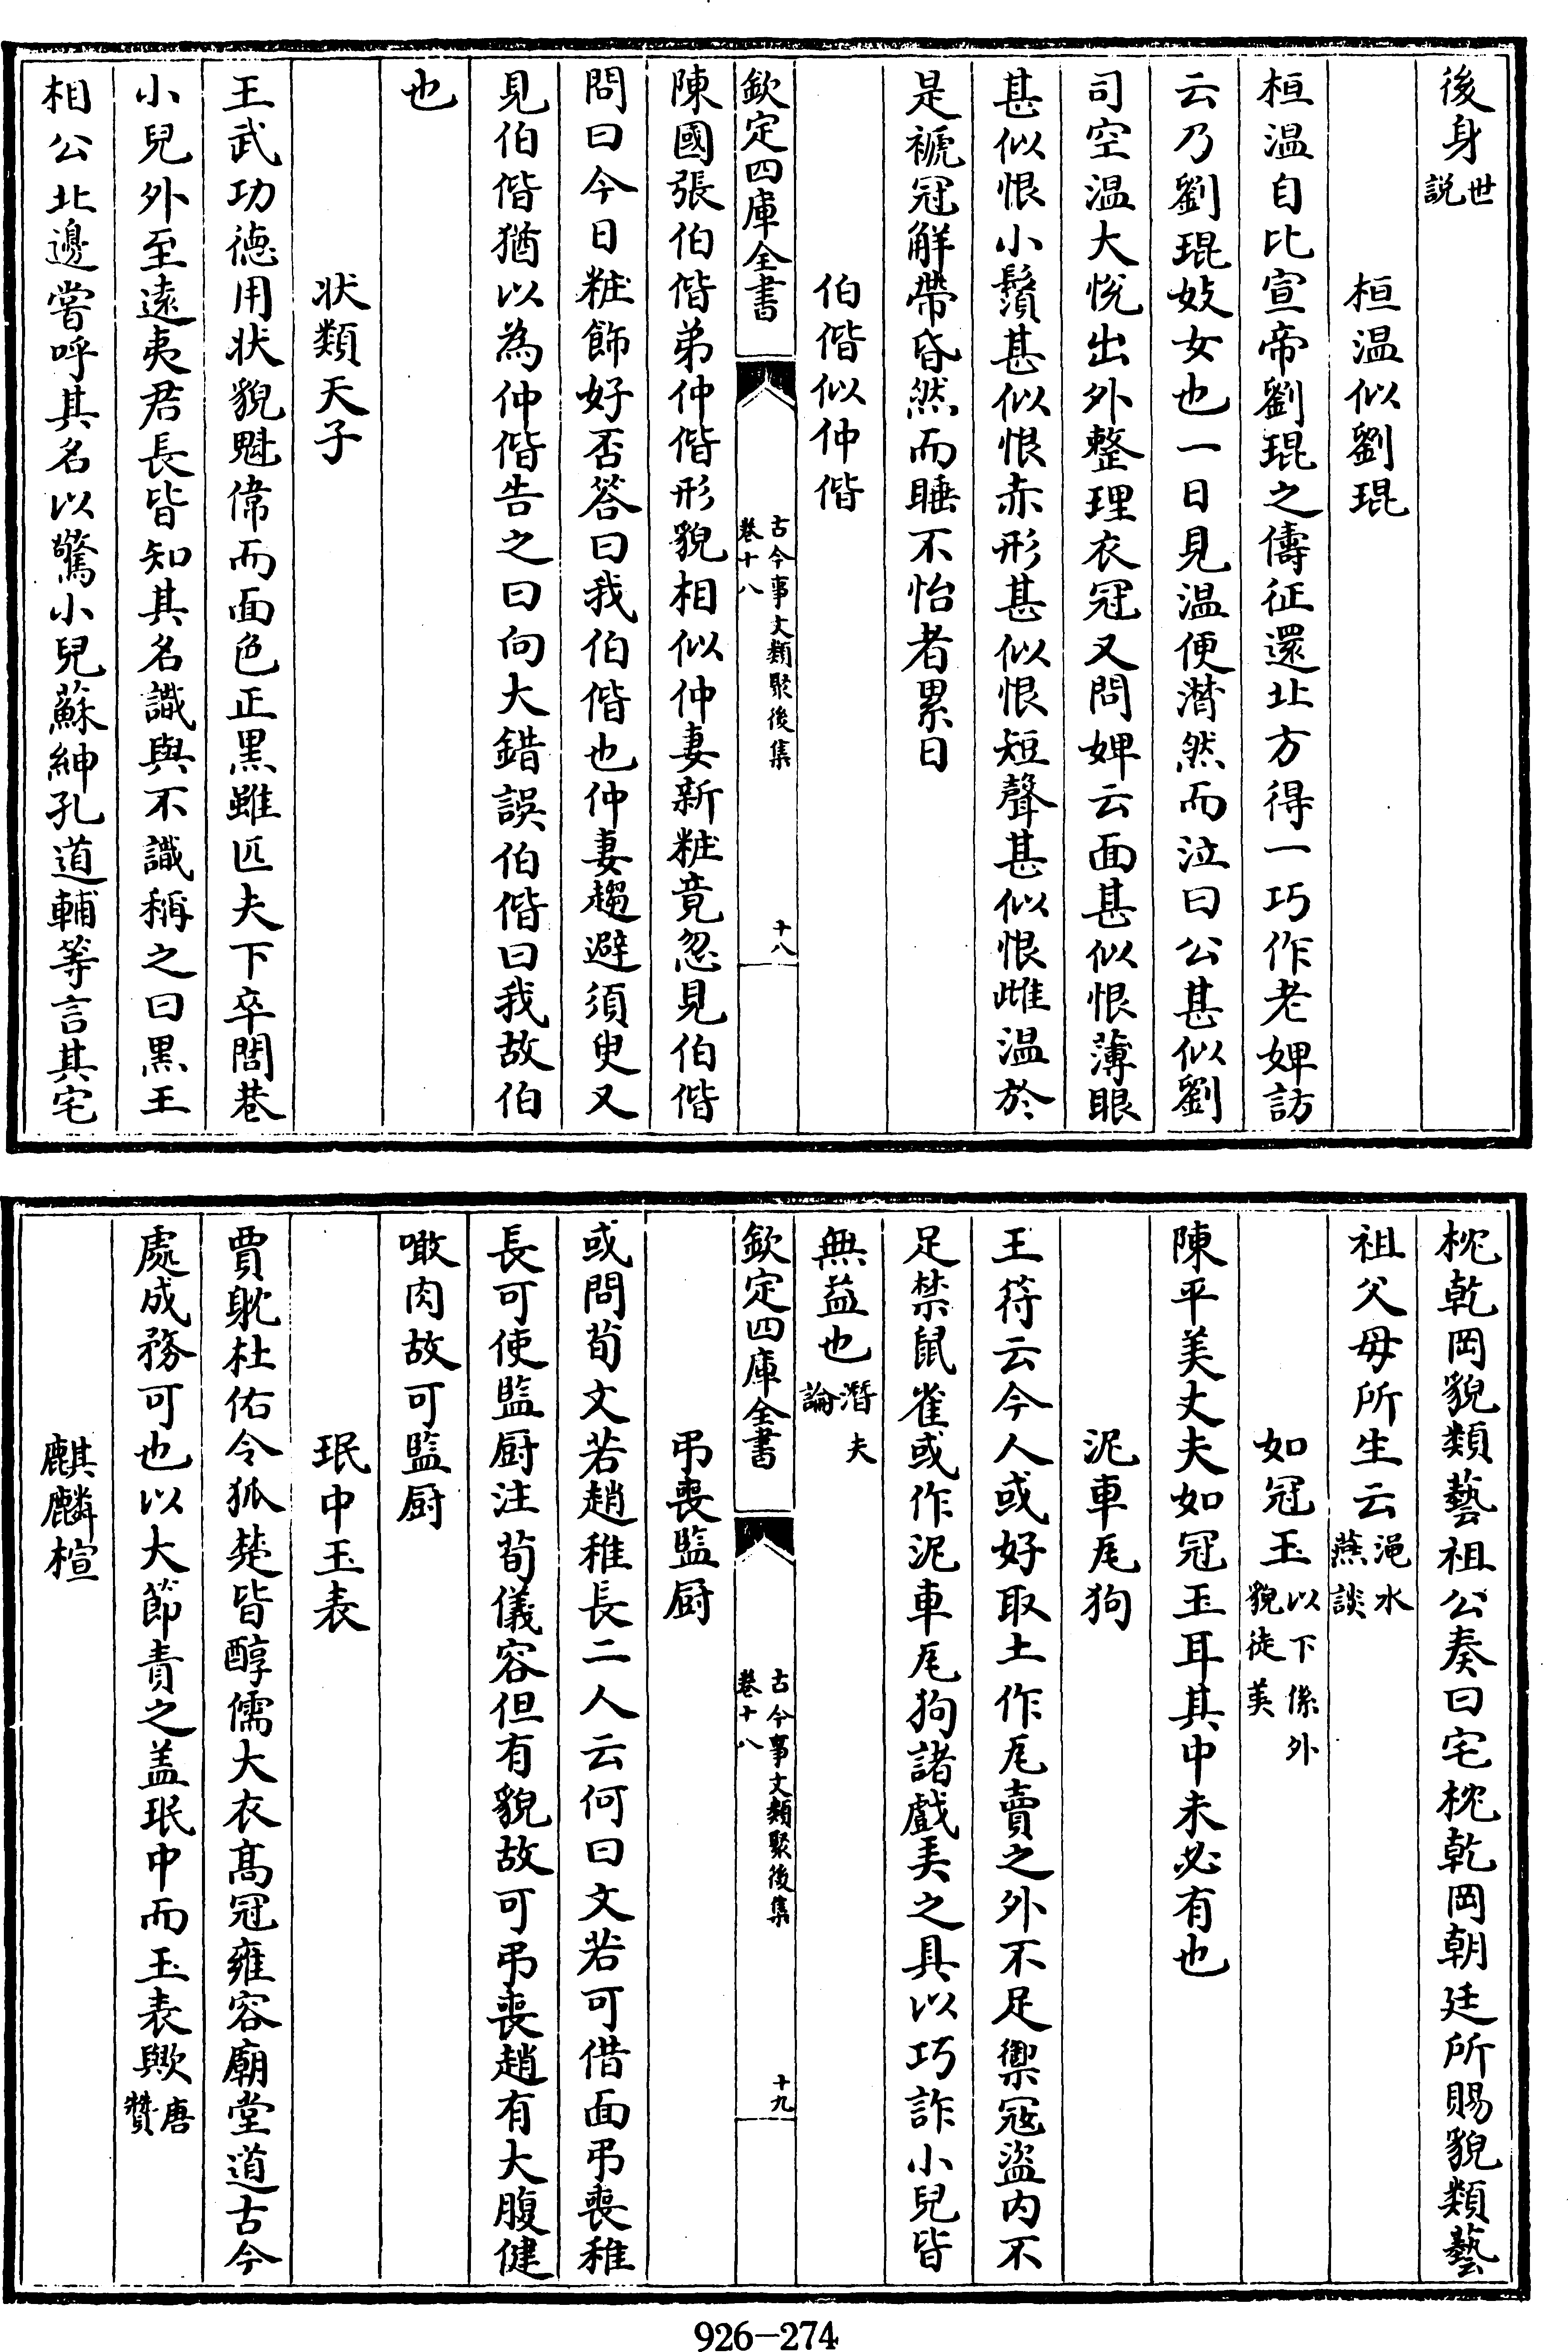 後身世說
桓温似劉琨
桓温自比宣帝劉琨之儔征還北方得一巧作老婢訪
云乃劉琨妓女也一日見温便潸然而泣曰公甚似劉
司空温大悅出外整理衣冠又問婢云面甚似恨薄眼
甚似恨小鬚甚似恨赤形甚似恨短聲甚似恨雌温於
是褫冠解帶昏然而睡不怡者累日
伯偕似仲偕
欽定四庫全書 古今事文類聚後集 卷十八 十八
陳國張伯偕弟仲偕形貌相似仲妻新粧竟忽見伯偕
問曰今日粧飾好否答曰我伯偕也仲妻趨避須臾又
見伯偕猶以為仲偕告之曰向大錯誤伯偕曰我故伯
也
狀類天子
王武功德用狀貌魁偉而面色正黒雖匹夫下卒閭巷
小兒外至遠夷君長皆知其名識與不識稱之曰黒王
相公北邊嘗呼其名以驚小兒蘇紳孔道輔等言其宅
枕乾岡貌類藝祖公奏曰宅枕乾岡朝廷所賜貌類藝
祖父母所生云澠水燕談
如冠玉以下係外貌徒美
陳平美丈夫如冠玉耳其中未必有也
泥車瓦狗
王符云今人或好取土作瓦賣之外不足禦寇盜内不
足禁鼠雀或作泥車瓦狗諸戲弄之具以巧詐小兒皆
無益也潛夫論
欽定四庫全書 古今事文類聚後集 卷十八 十九
弔喪監厨
或問荀文若趙稚長二人云何曰文若可借面弔喪稚
長可使監厨注荀儀容但有貌故可弔喪趙有大腹健
噉肉故可監厨
珉中玉表
賈躭杜佑令狐楚皆醇儒大衣髙冠雍容廟堂道古今
處成務可也以大節責之盖珉中而玉表歟唐贊
麒麟楦
926-274